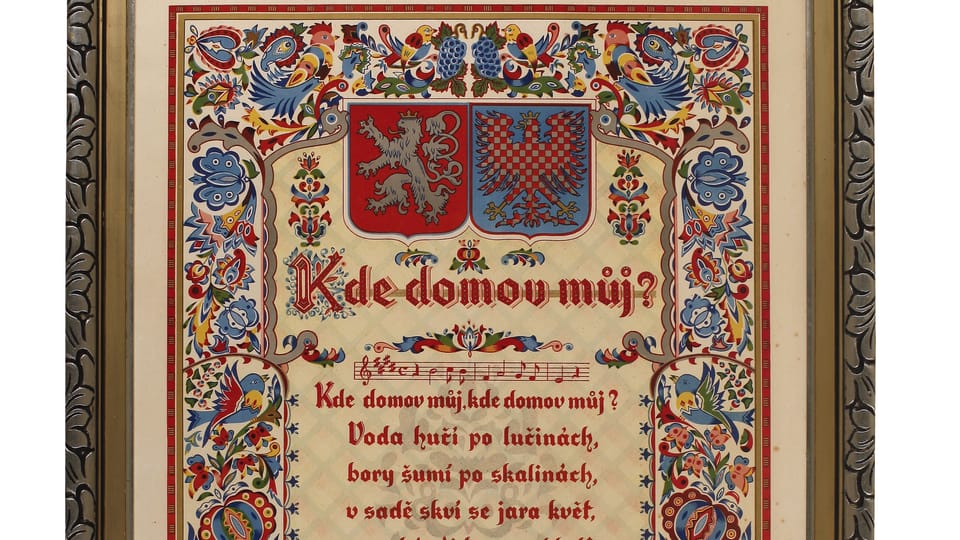 Kde domov můj?
Kde domov můj, kde domov můj?
Voda hučí po lučinách,
bory šumí po skalinách,
v sadě skví se jara květ,